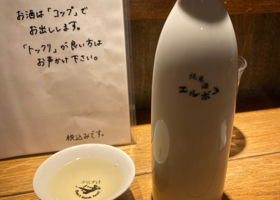 お酒は「コップ」で
お出しします。
「トックリ」が良い方は
お声かけ下さい。
税込みです。
エルボン